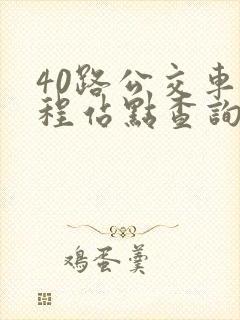 40路公交車
程佔點查詢
鸡蛋羹